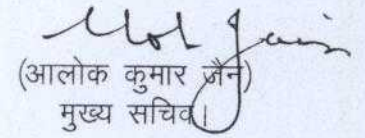 (आलोक कुमार जैन)
मुख्य सचिव।